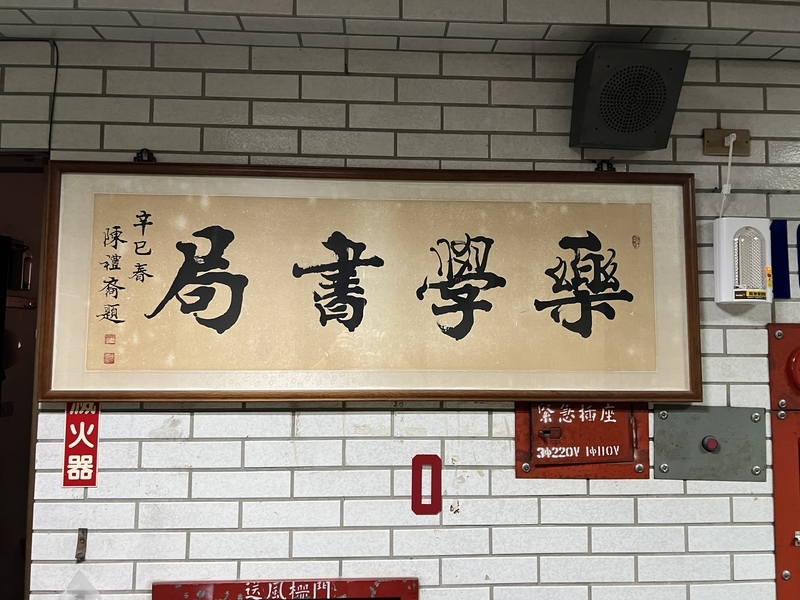 樂學書局
辛巳春
陳禮齋題
滅火器
緊急插座
3φ220V 1φ110V
送風機閘門